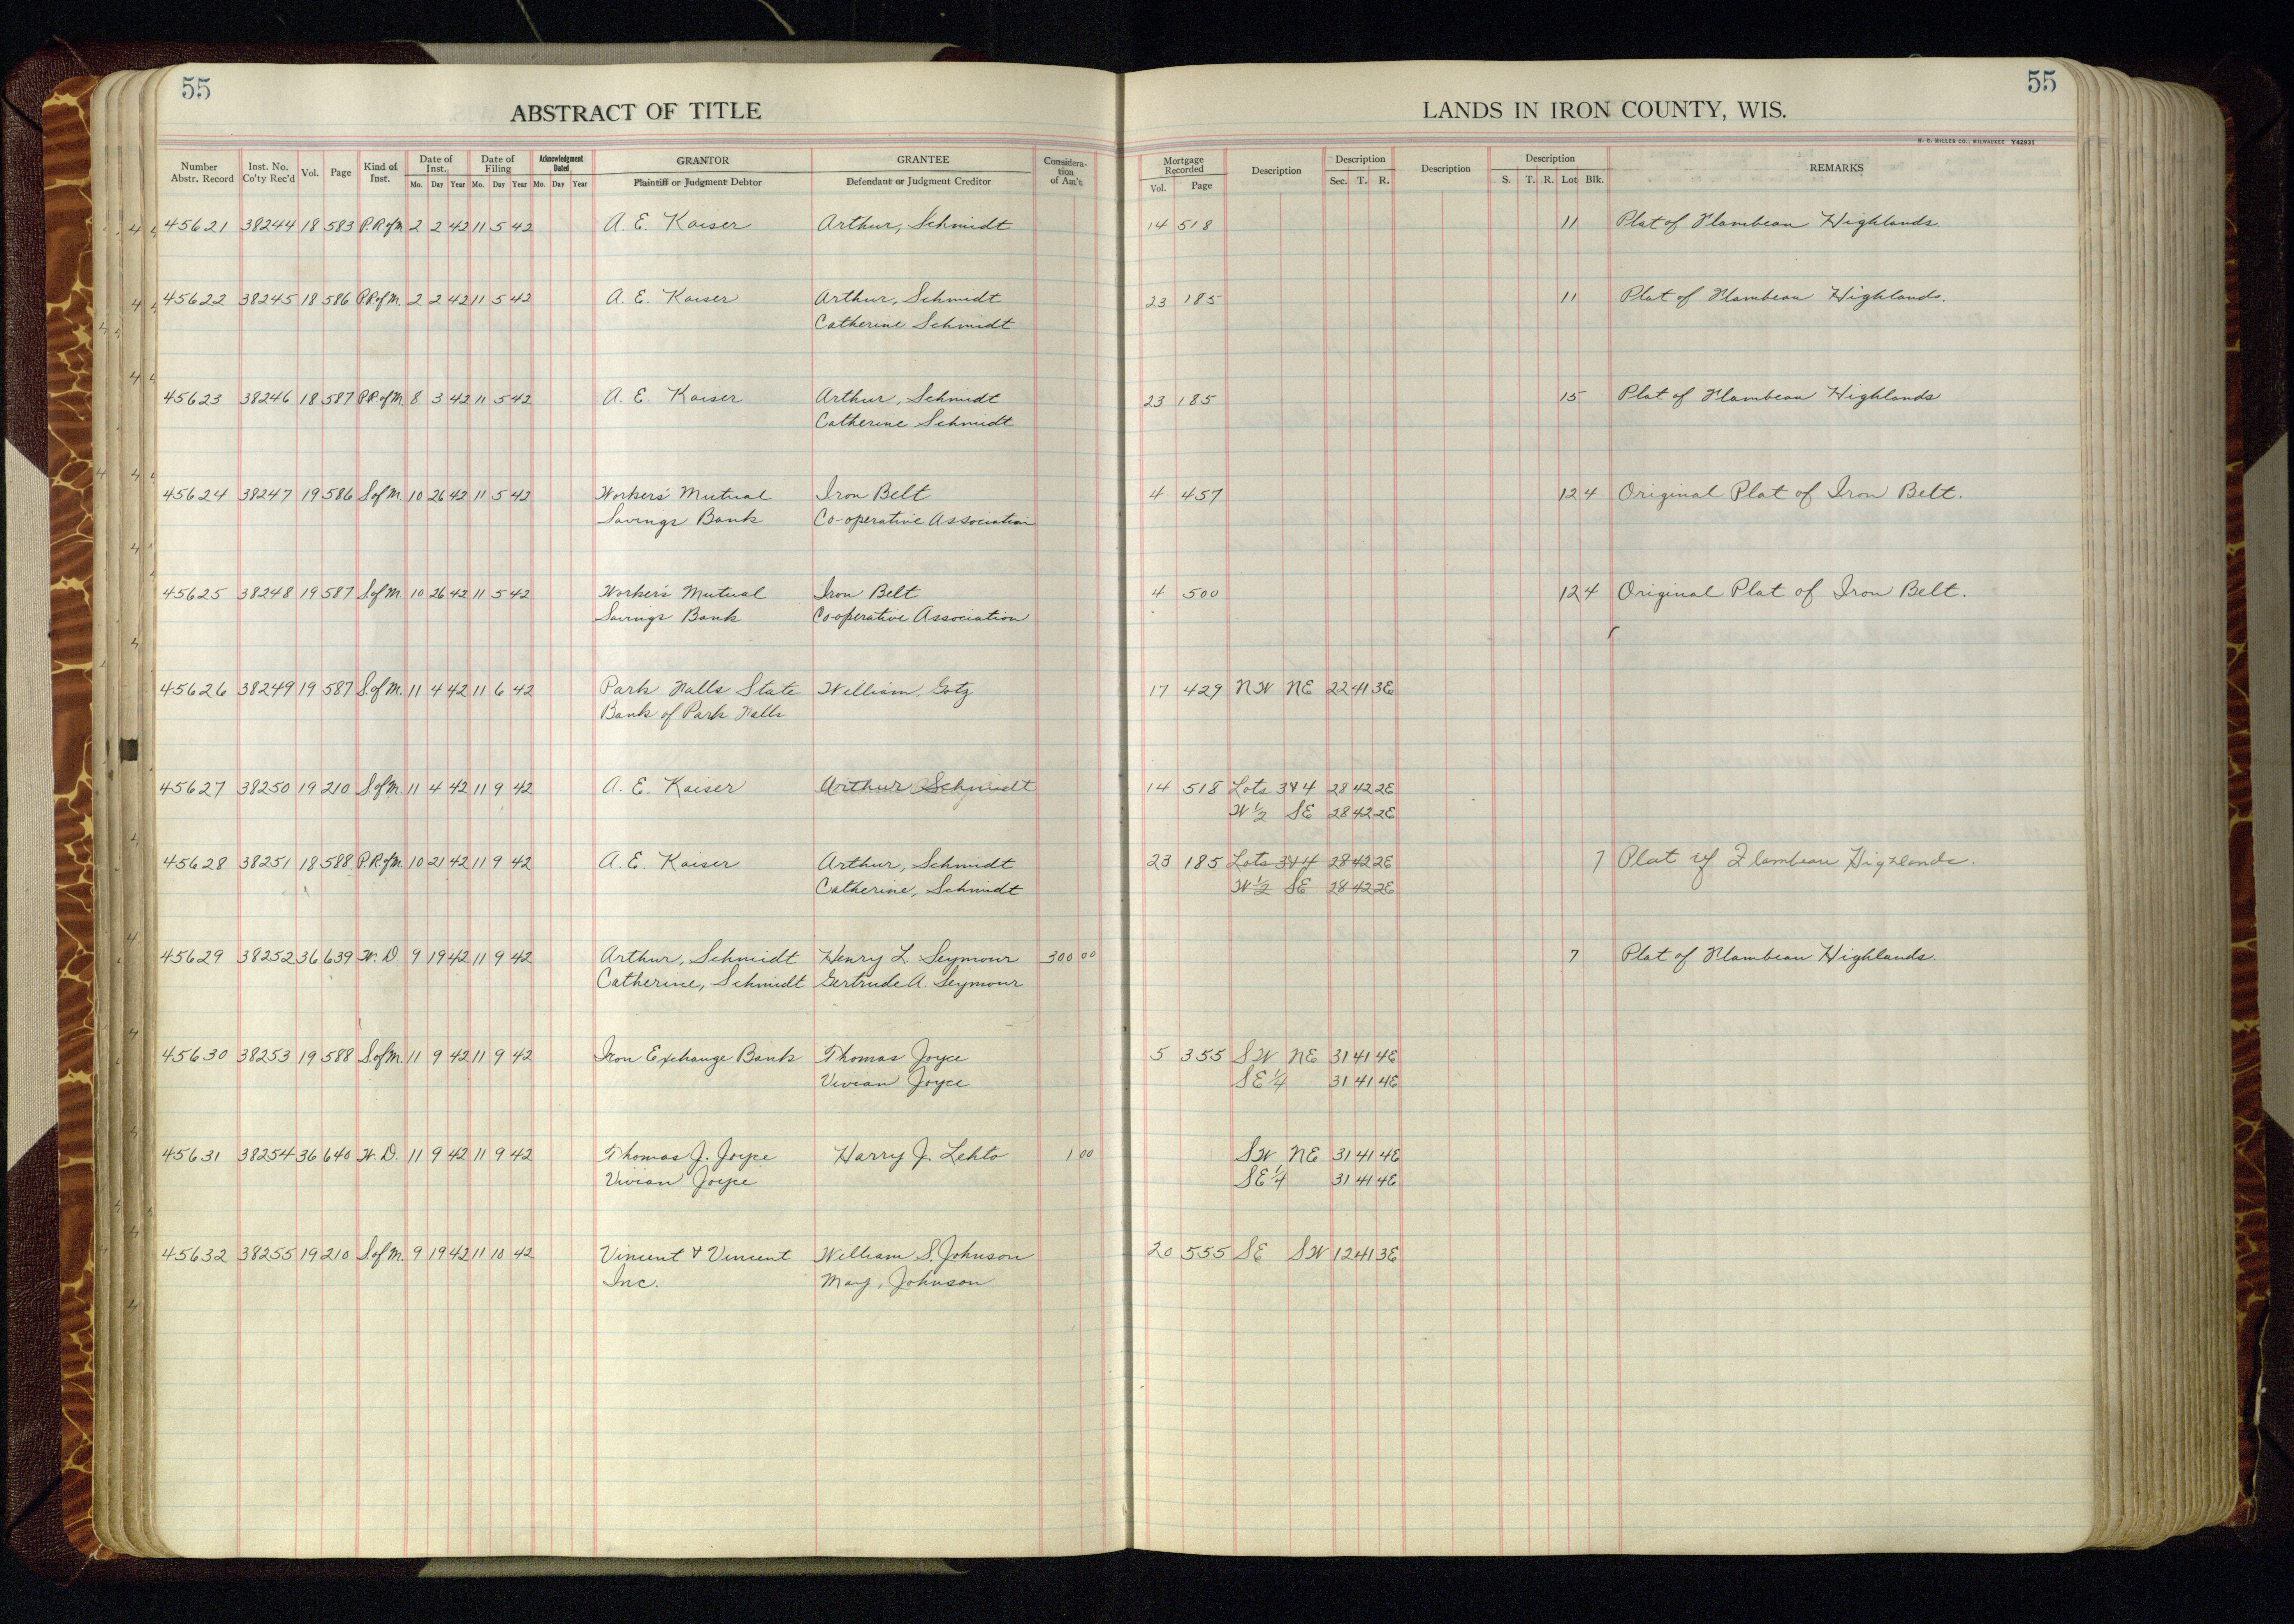 55
55
ABSTRACT OF TITLE
LANDS IN IRON COUNTY, WIS.
H. C. MILLER CO., MILWAUKEE Y42931
Number Abstr. Record Inst. No. Co'ty Rec'd Vol. Page Kind of Inst. Date of Inst. Mo. Day Year Date of Filing Mo. Day Year Acknowledgment Dated Mo. Day Year GRANTOR Plaintiff or Judgment Debtor GRANTEE Defendant or Judgment Creditor Considera-tion of Am't Mortgage Recorded Vol. Page Description Description Sec. T. R. Description Description S. T. R. Lot Blk. REMARKS
45621 38244 18 583 P.R.of M. 2 2 42 11 5 42 A. E. Kaiser Arthur, Schmidt 14 518 11 Plat of Flambeau Highlands.
45622 38245 18 586 P.R.of M. 2 2 42 11 5 42 A. E. Kaiser Arthur, Schmidt 23 185 11 Plat of Flambeau Highlands.
Catherine Schmidt
45623 38246 18 587 P.R.of M. 8 3 42 11 5 42 A. E. Kaiser Arthur, Schmidt 23 185 15 Plat of Flambeau Highlands
Catherine Schmidt
45624 38247 19 586 S.of M. 10 26 42 11 5 42 Workers' Mutual Iron Belt 4 457 12 4 Original Plat of Iron Belt.
Savings Bank Co-operative Association
45625 38248 19 587 S.of M. 10 26 42 11 5 42 Worker's Mutual Iron Belt 4 500 12 4 Original Plat of Iron Belt.
Savings Bank Co-operative Association
45626 38249 19 587 S.of M. 11 4 42 11 6 42 Park Falls State William, Gotz 17 429 NW NE 22 41 3E
Bank of Park Falls
45627 38250 19 210 S.of M. 11 4 42 11 9 42 A. E. Kaiser Arthur Schmidt 14 518 Lots 3 & 4 28 42 2E
W 1/2 SE 28 42 2E
45628 38251 18 588 P.R.of M. 10 21 42 11 9 42 A. E. Kaiser Arthur, Schmidt 23 185 Lots 3 & 4 28 42 2E 7 Plat of Flambeau Highlands.
Catherine, Schmidt W 1/2 SE 28 42 2E
45629 38252 36 639 W. D. 9 19 42 11 9 42 Arthur, Schmidt Henry L. Seymour 300 00 7 Plat of Flambeau Highlands.
Catherine, Schmidt Gertrude A. Seymour
45630 38253 19 588 S.of M. 11 9 42 11 9 42 Iron Exchange Bank Thomas Joyce 5 355 SW NE 31 41 4E
Vivian Joyce SE 1/4 31 41 4E
45631 38254 36 640 W. D. 11 9 42 11 9 42 Thomas J. Joyce Harry J. Lehto 1 00 SW NE 31 41 4E
Vivian Joyce SE 1/4 31 41 4E
45632 38255 19 210 S.of M. 9 19 42 11 10 42 Vincent & Vincent William S. Johnson 20 555 SE SW 12 41 3E
Inc. Mary, Johnson